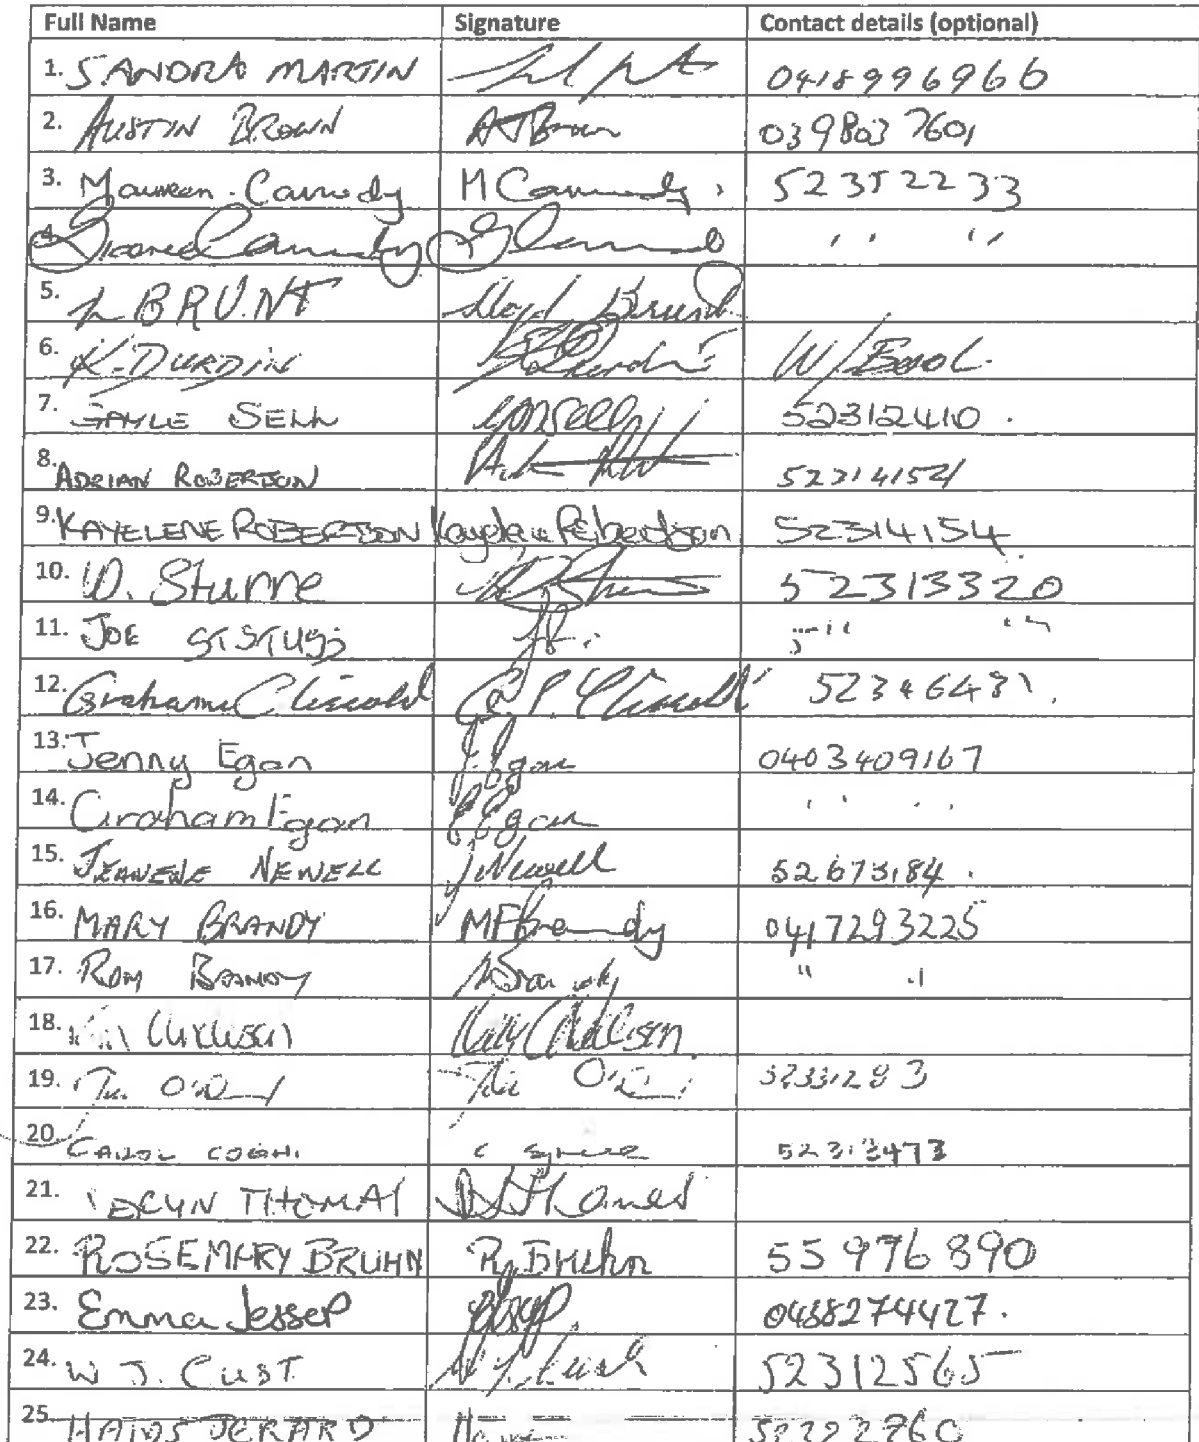 Full Name Signature Contact details (optional)
1. SANDRA MARTIN 0418996966
2. AUSTIN BROWN ATBrown 039803 7601
3. Maureen Carmody M Carmody. 52352233
4. Carmody " "
5. L BRUNT Lloyd Brunt
6. K. DURDIN K Durdin W/Bool.
7. GAYLE SELL 52312410.
8. ADRIAN ROBERTSON 52314154
9. KAYELENE ROBERTSON Kaylene Robertson 52314154
10. D. Sturre 52313320
11. JOE " "
12. Graham 52346481.
13. Jenny Egan J. Egan 0403409167
14. Graham Egan G Egan " "
15. JEANENE NEWELL J Newell 52673184.
16. MARY BRANDY MF Brandy 0417293225
17. RON BRANDY Brandy " "
18.
19. 52331283
20. CAROL 52312473
21. THOMAS Thomas
22. ROSEMARY BRUHN R. Bruhn 55976890
23. Emma Jessep 0458274427.
24. W J. CUST W J. Cust 52312565
25. JERARD 52222760